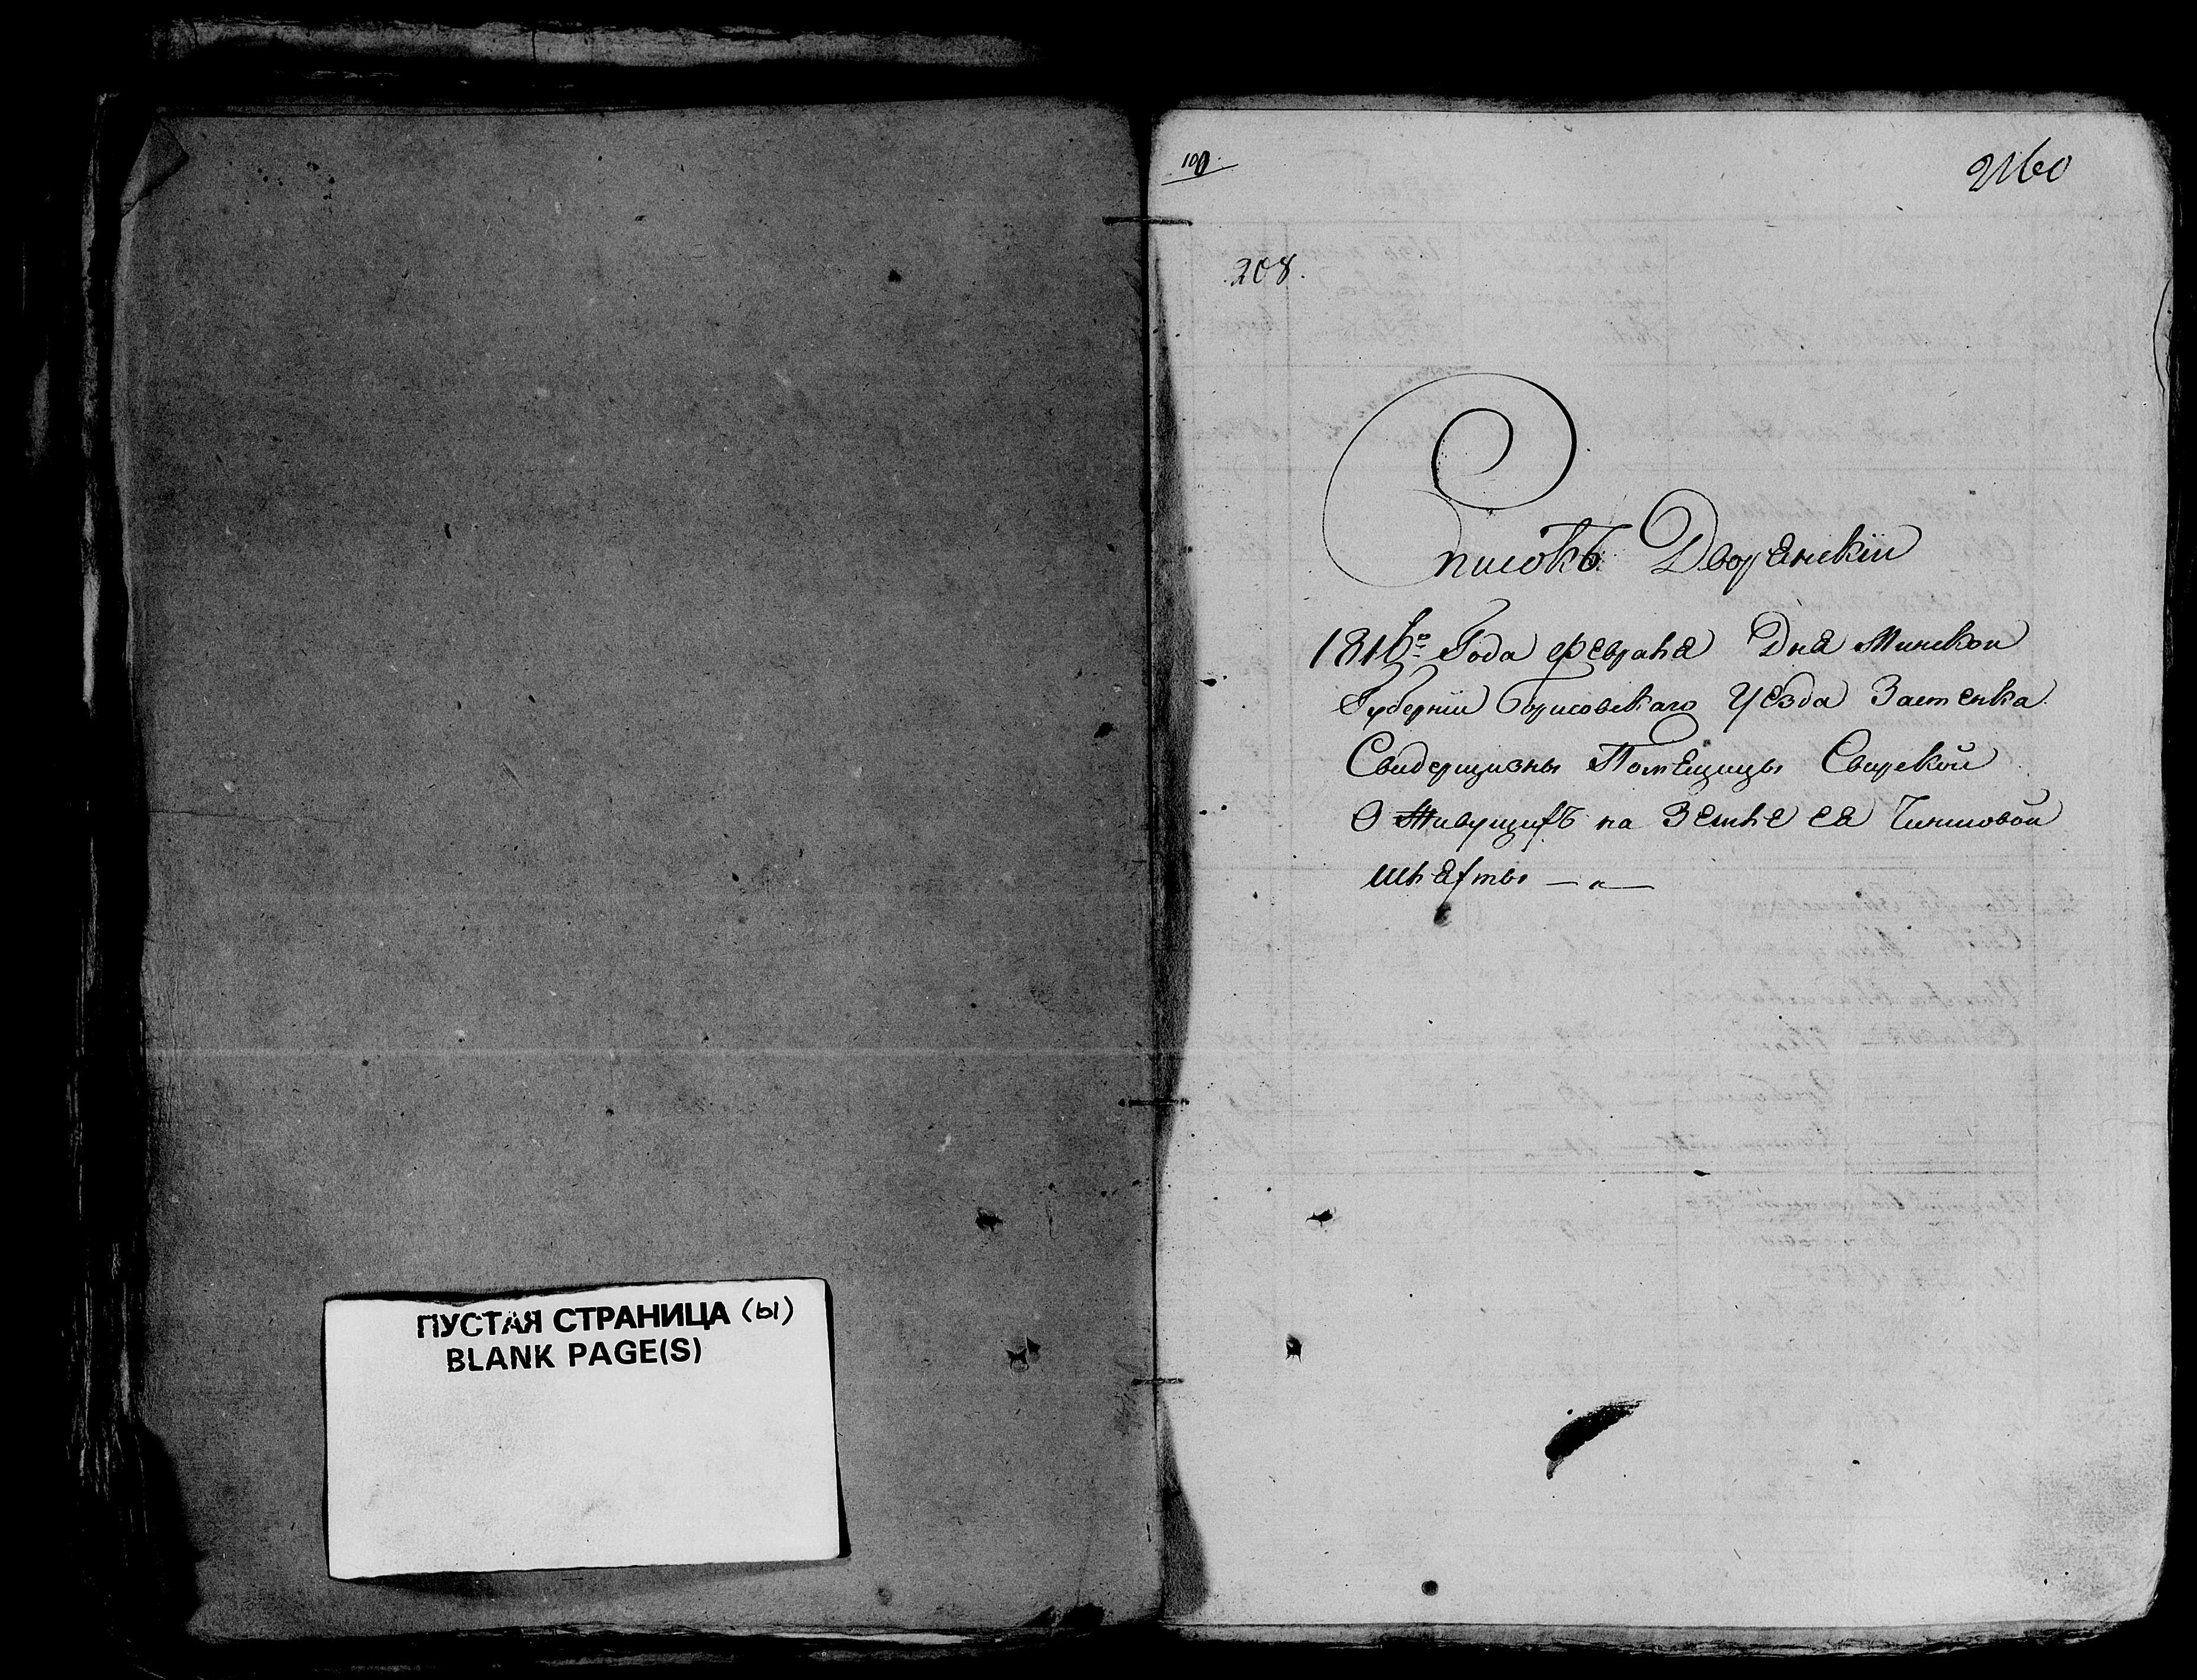 ПУСТАЯ СТРАНИЦА (ы)
BLANK PAGE(S)
100
2160
208.
Списокъ Дворѣнскіи
1816го Года февраля Дня Минскои
Губерніи Борисовскаго Уезда Застенка
Свидерщизны Помѣщицы Свирской
О Живущихъ на Земле ея Чиншовой
шляхты